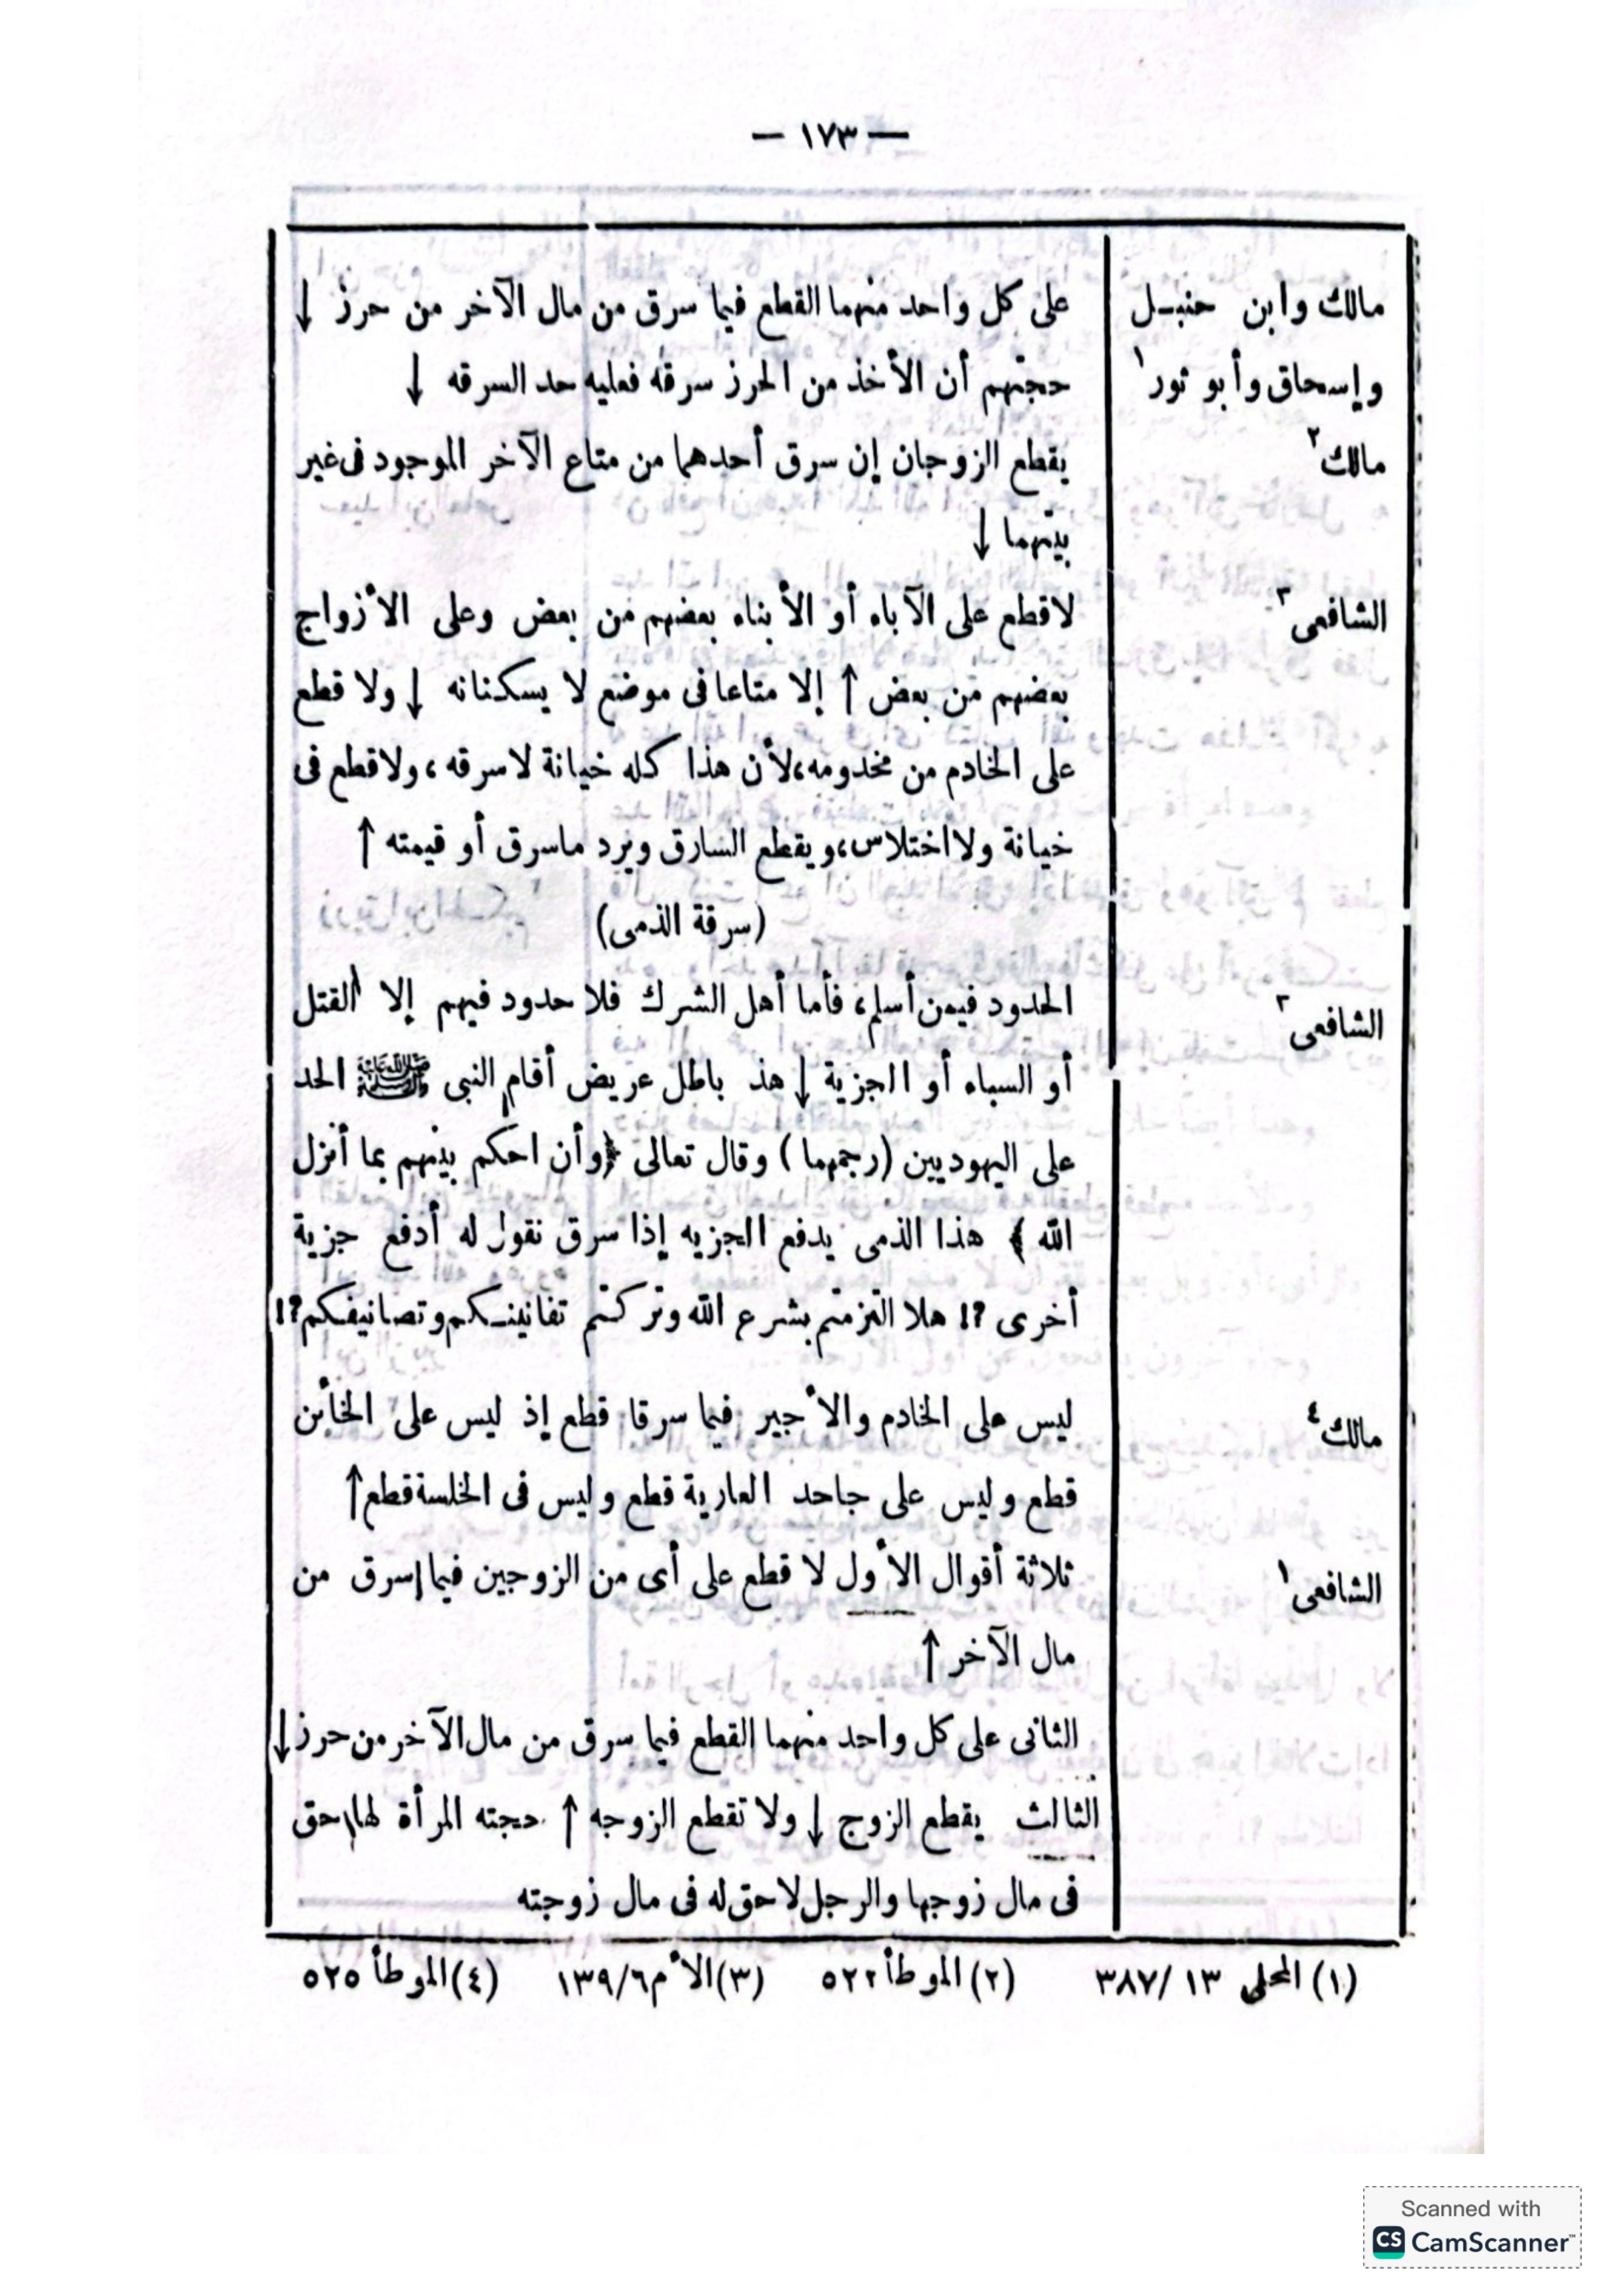 — ١٧٣ —
مالك وابن حنبـل على كل واحد منهما القطع فيما سرق من مال الآخر من حرز ↓
وإسحاق وأبو ثور١ حجتهم أن الأخذ من الحرز سرقه فعليه حد السرقه ↓
مالك٢ يقطع الزوجان إن سرق أحدهما من متاع الآخر الموجود فى غير
بيتهما ↓
الشافعى٣ لاقطع على الآباء أو الأبناء بعضهم من بعض وعلى الأزواج
بعضهم من بعض ↑ إلا متاعا فى موضع لا يسكنانه ↓ ولا قطع
على الخادم من مخدومه، لأن هذا كله خيانة لا سرقه ، ولاقطع فى
خيانة ولا اختلاس، ويقطع السارق ويرد ماسرق أو قيمته ↑
(سرقة الذمى)
الشافعى٣ الحدود فيمن أسلم، فأما أهل الشرك فلا حدود فيهم إلا القتل
أو السباء أو الجزية ↓ هذ باطل عريض أقام النبى ﷺ الحد
على اليهوديين (رجمهما) وقال تعالى ﴿وأن احكم بينهم بما أنزل
الله ﴾ هذا الذمى يدفع الجزيه إذا سرق نقول له أدفع جزية
أخرى ؟! هلا التزمتم بشرع الله وتركتم تفانينـكم وتصانيفـكم؟!
مالك٤ ليس على الخادم والأجير فيما سرقا قطع إذ ليس على الخائن
قطع وليس على جاحد العارية قطع وليس فى الخلسة قطع ↑
الشافعى١ ثلاثة أقوال الأول لا قطع على أى من الزوجين فيما سرق من
مال الآخر ↑
الثانى على كل واحد منهما القطع فيما سرق من مال الآخر من حرز ↓
الثالث يقطع الزوج ↓ ولا تقطع الزوجه ↑ حجته المرأة لها حق
فى مال زوجها والرجل لاحق له فى مال زوجته
(١) المحلى ١٣ /٣٨٧ (٢) الموطأ ٥٢٢ (٣) الأم ١٣٩/٦ (٤) الموطأ ٥٢٥
Scanned with
CS CamScanner™